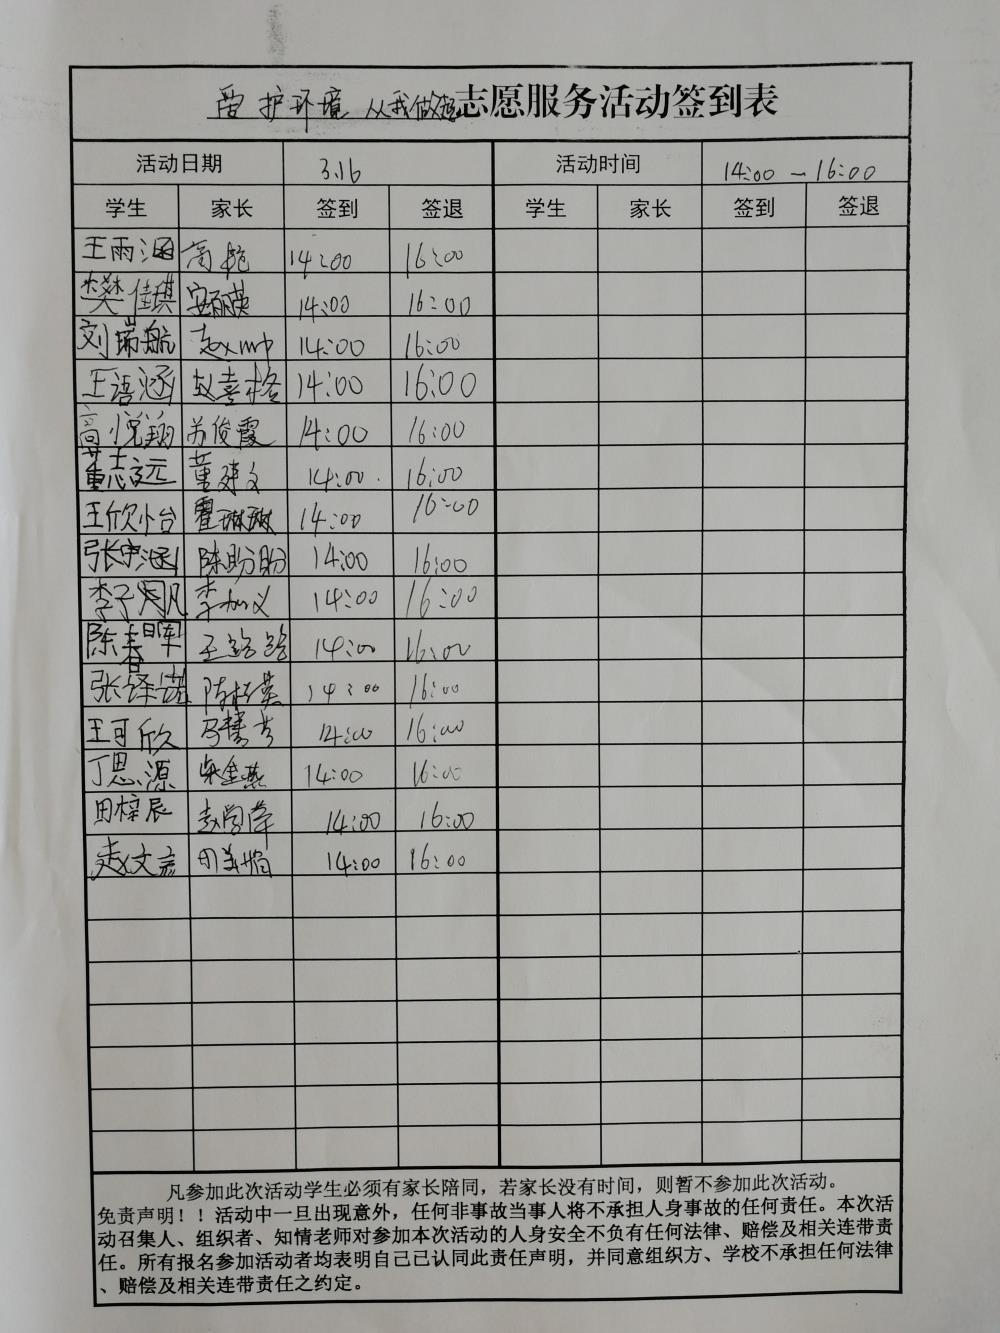 爱护环境 从我做起志愿服务活动签到表
活动日期 3.16 活动时间 14:00 — 16:00
学生 家长 签到 签退 学生 家长 签到 签退
王雨涵 高艳 14:00 16:00
樊佳琪 安丽英 14:00 16:00
刘瑞航 14:00 16:00
王语涵 赵喜格 14:00 16:00
高悦翔 苏俊霞 14:00 16:00
董志远 董建文 14:00 16:00
王欣怡 霍琳琳 14:00 16:00
张宇涵 陈盼盼 14:00 16:00
李子凡 李加义 14:00 16:00
陈春晖 王路路 14:00 16:00
张铎 14:00 16:00
王可欣 马慧芳 14:00 16:00
丁思源 朱金燕 14:00 16:00
田梓辰 赵学萍 14:00 16:00
赵文 田美娟 14:00 16:00
凡参加此次活动学生必须有家长陪同，若家长没有时间，则暂不参加此次活动。
免责声明！！活动中一旦出现意外，任何非事故当事人将不承担人身事故的任何责任。本次活
动召集人、组织者、知情老师对参加本次活动的人身安全不负有任何法律、赔偿及相关连带责
任。所有报名参加活动者均表明自己己认同此责任声明，并同意组织方、学校不承担任何法律
、赔偿及相关连带责任之约定。